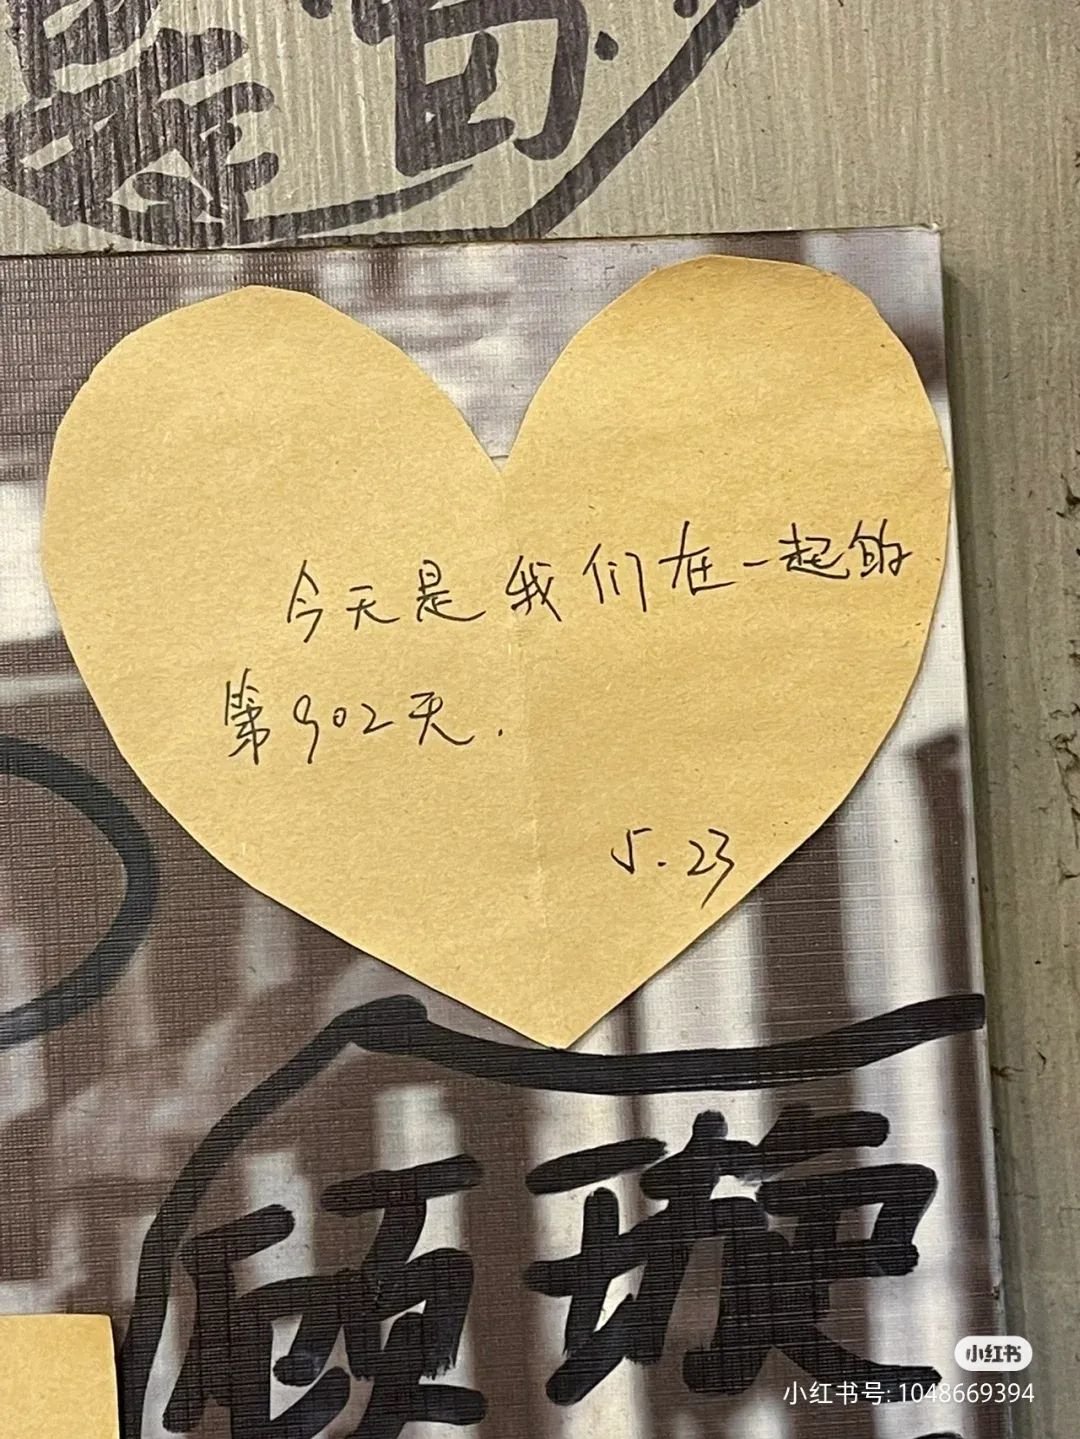 今天是我们在一起的
第902天.
5.23
顾璇
小红书
小红书号: 1048669394